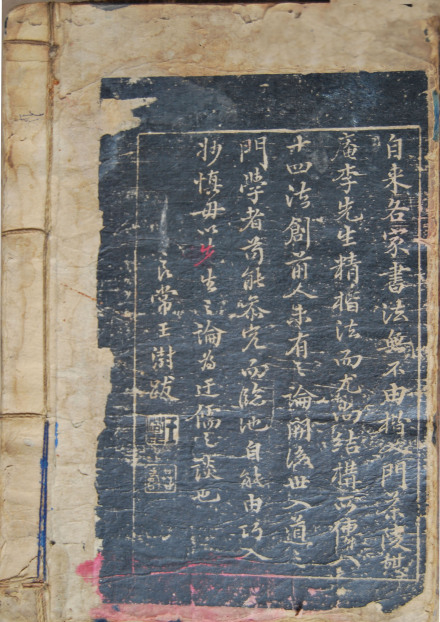 自来各家書法無不由楷入門茶陵
庵李先生精楷法而尤尚結構所傳八
十四法創前人未有之論開後世入道之
門學者苟能參究而臨池自能由巧入
妙慎毋以先生之論為迂儒之談也
良常王澍跋